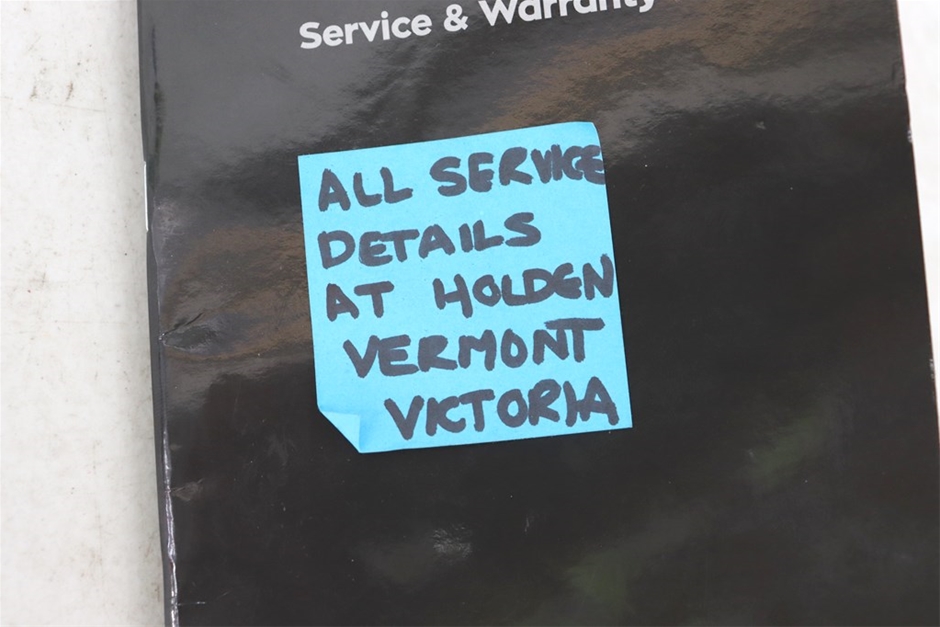 Service & Warranty
ALL SERVICE
DETAILS
AT HOLDEN
VERMONT
VICTORIA